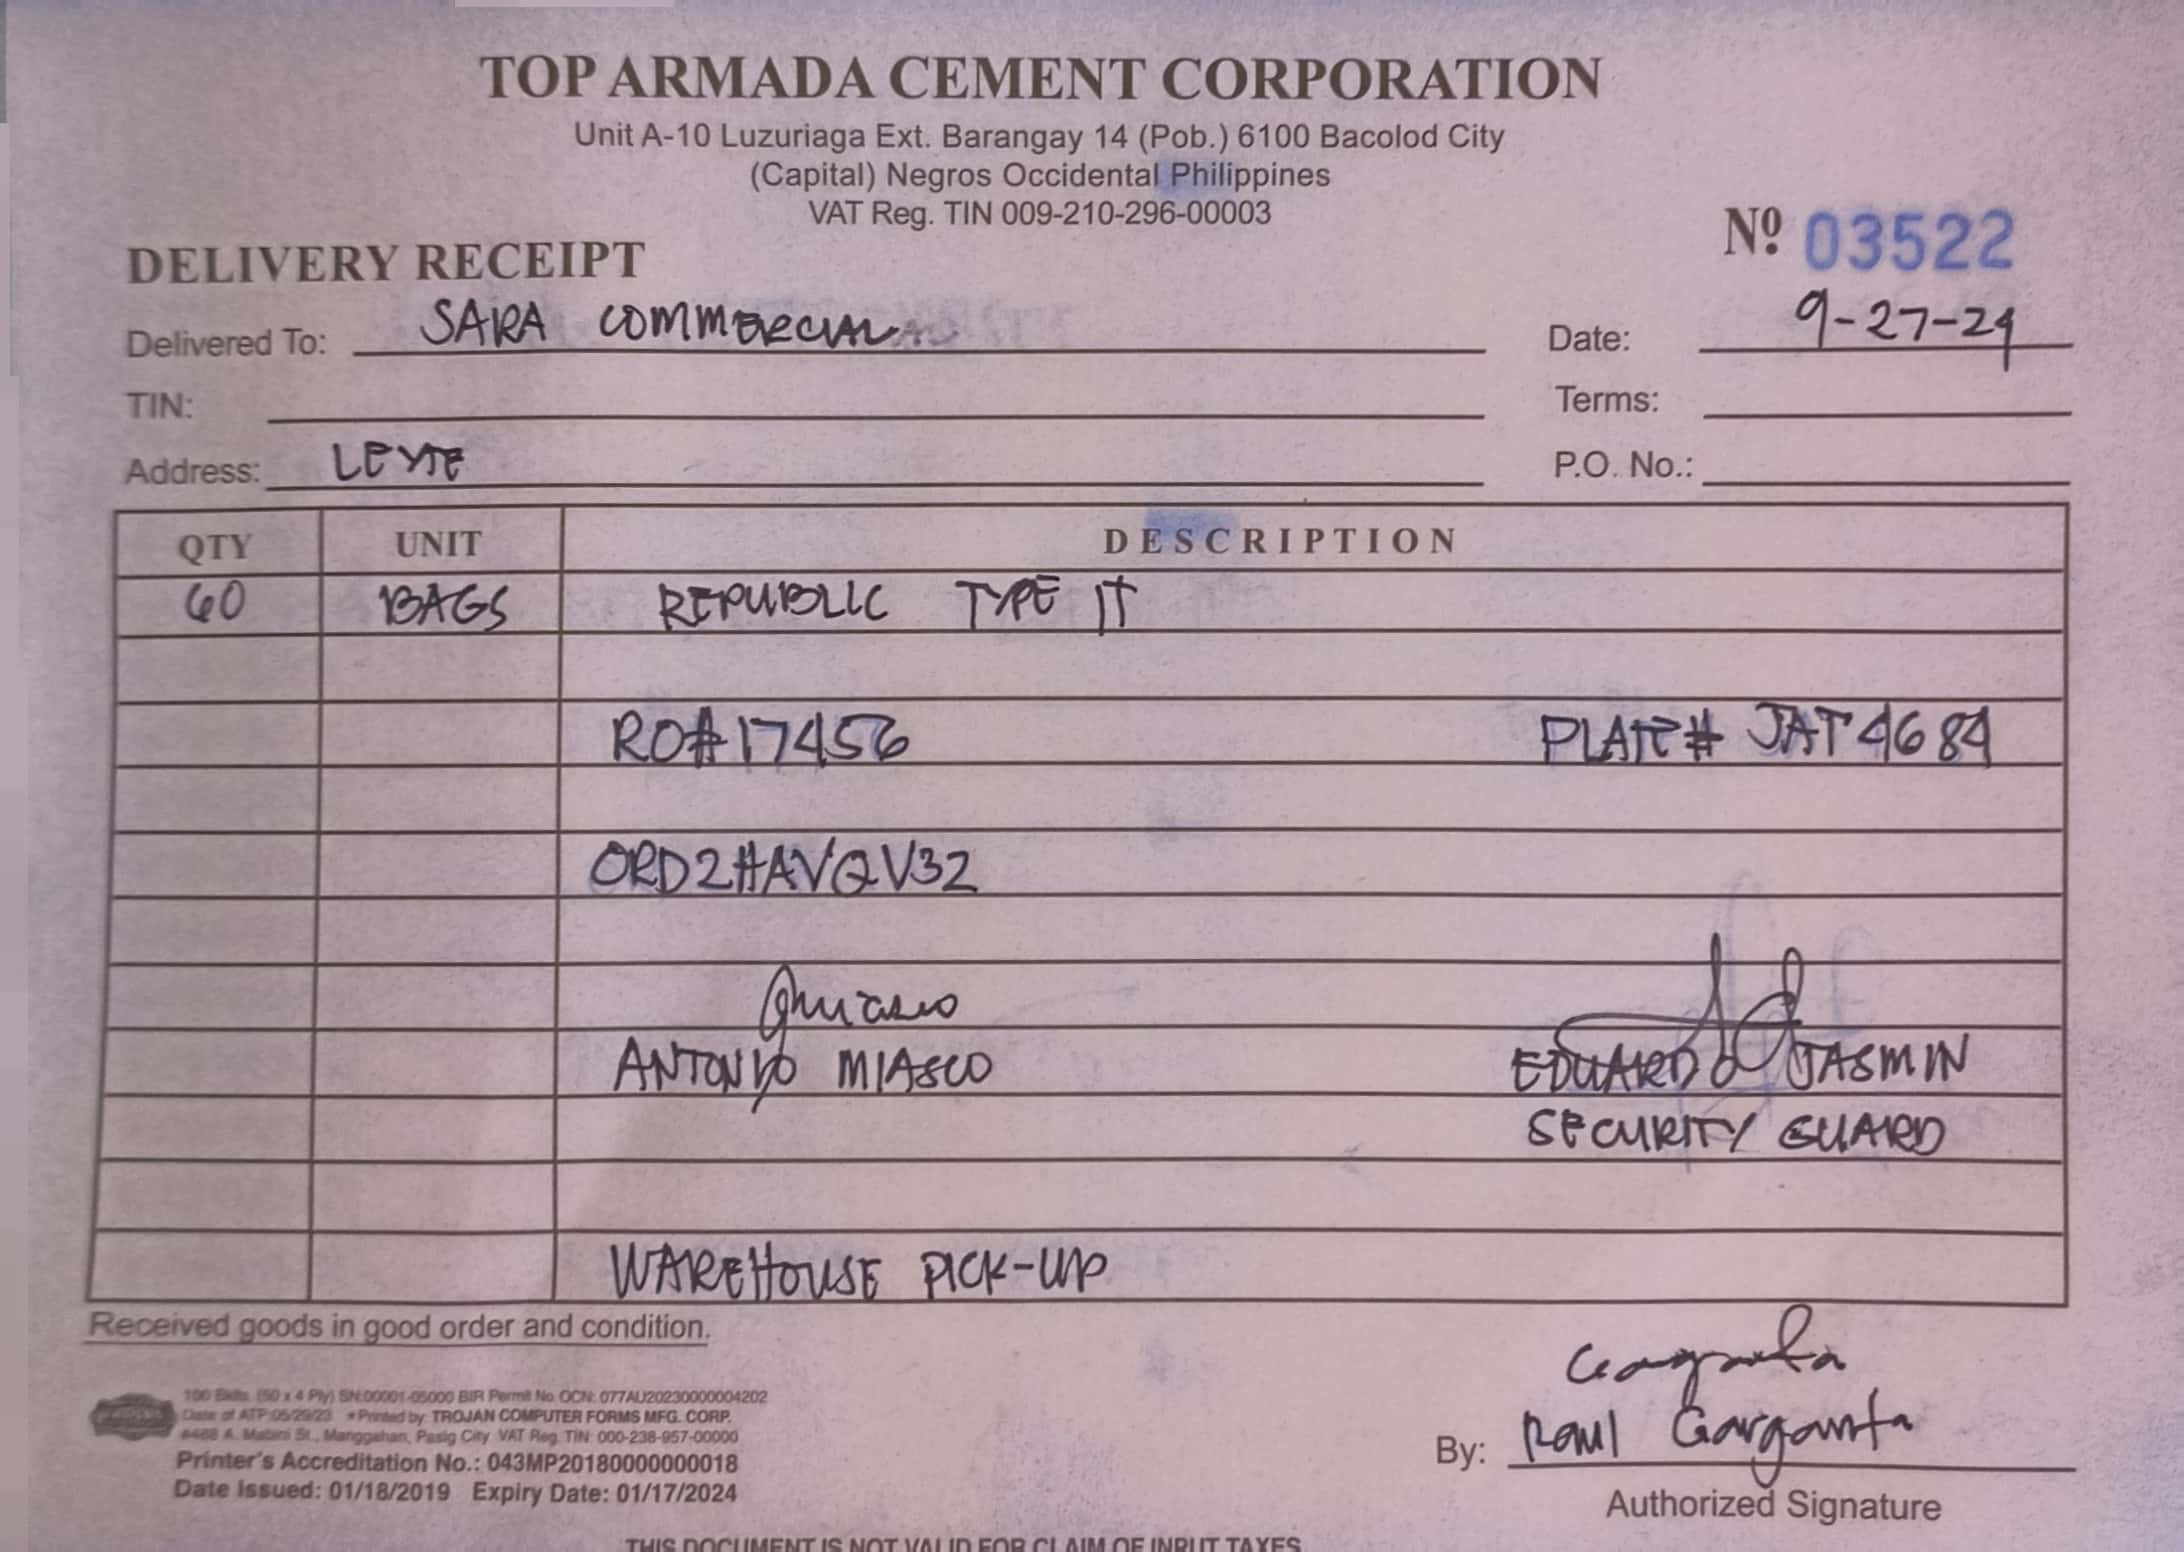 TOP ARMADA CEMENT CORPORATION
Unit A-10 Luzuriaga Ext. Barangay 14 (Pob.) 6100 Bacolod City
(Capital) Negros Occidental Philippines
VAT Reg. TIN 009-210-296-00003
Nº 03522
DELIVERY RECEIPT
Delivered To: SARA COMMERCIAL Date: 9-27-24
TIN: Terms:
Address: LEYTE P.O. No.:
QTY UNIT DESCRIPTION
60 BAGS REPUBLIC TYPE 1T
RO#17456 PLATE# JAT4684
ORD2HAVQV32
ANTONIO MIASCO EDUARDO JASMIN
SECURITY GUARD
WAREHOUSE PICK-UP
Received goods in good order and condition.
100 Bklts. (50 x 4 Ply) SN:00001-05000 BIR Permit No. OCN: 077AU20230000004202
Date of ATP:05/29/23 *Printed by: TROJAN COMPUTER FORMS MFG. CORP.
#468 A. Mabini St., Manggahan, Pasig City VAT Reg. TIN: 000-238-957-00000
Printer's Accreditation No.: 043MP20180000000018
Date Issued: 01/18/2019 Expiry Date: 01/17/2024
By: Raul Garganta
Authorized Signature
THIS DOCUMENT IS NOT VALID FOR CLAIM OF INPUT TAXES